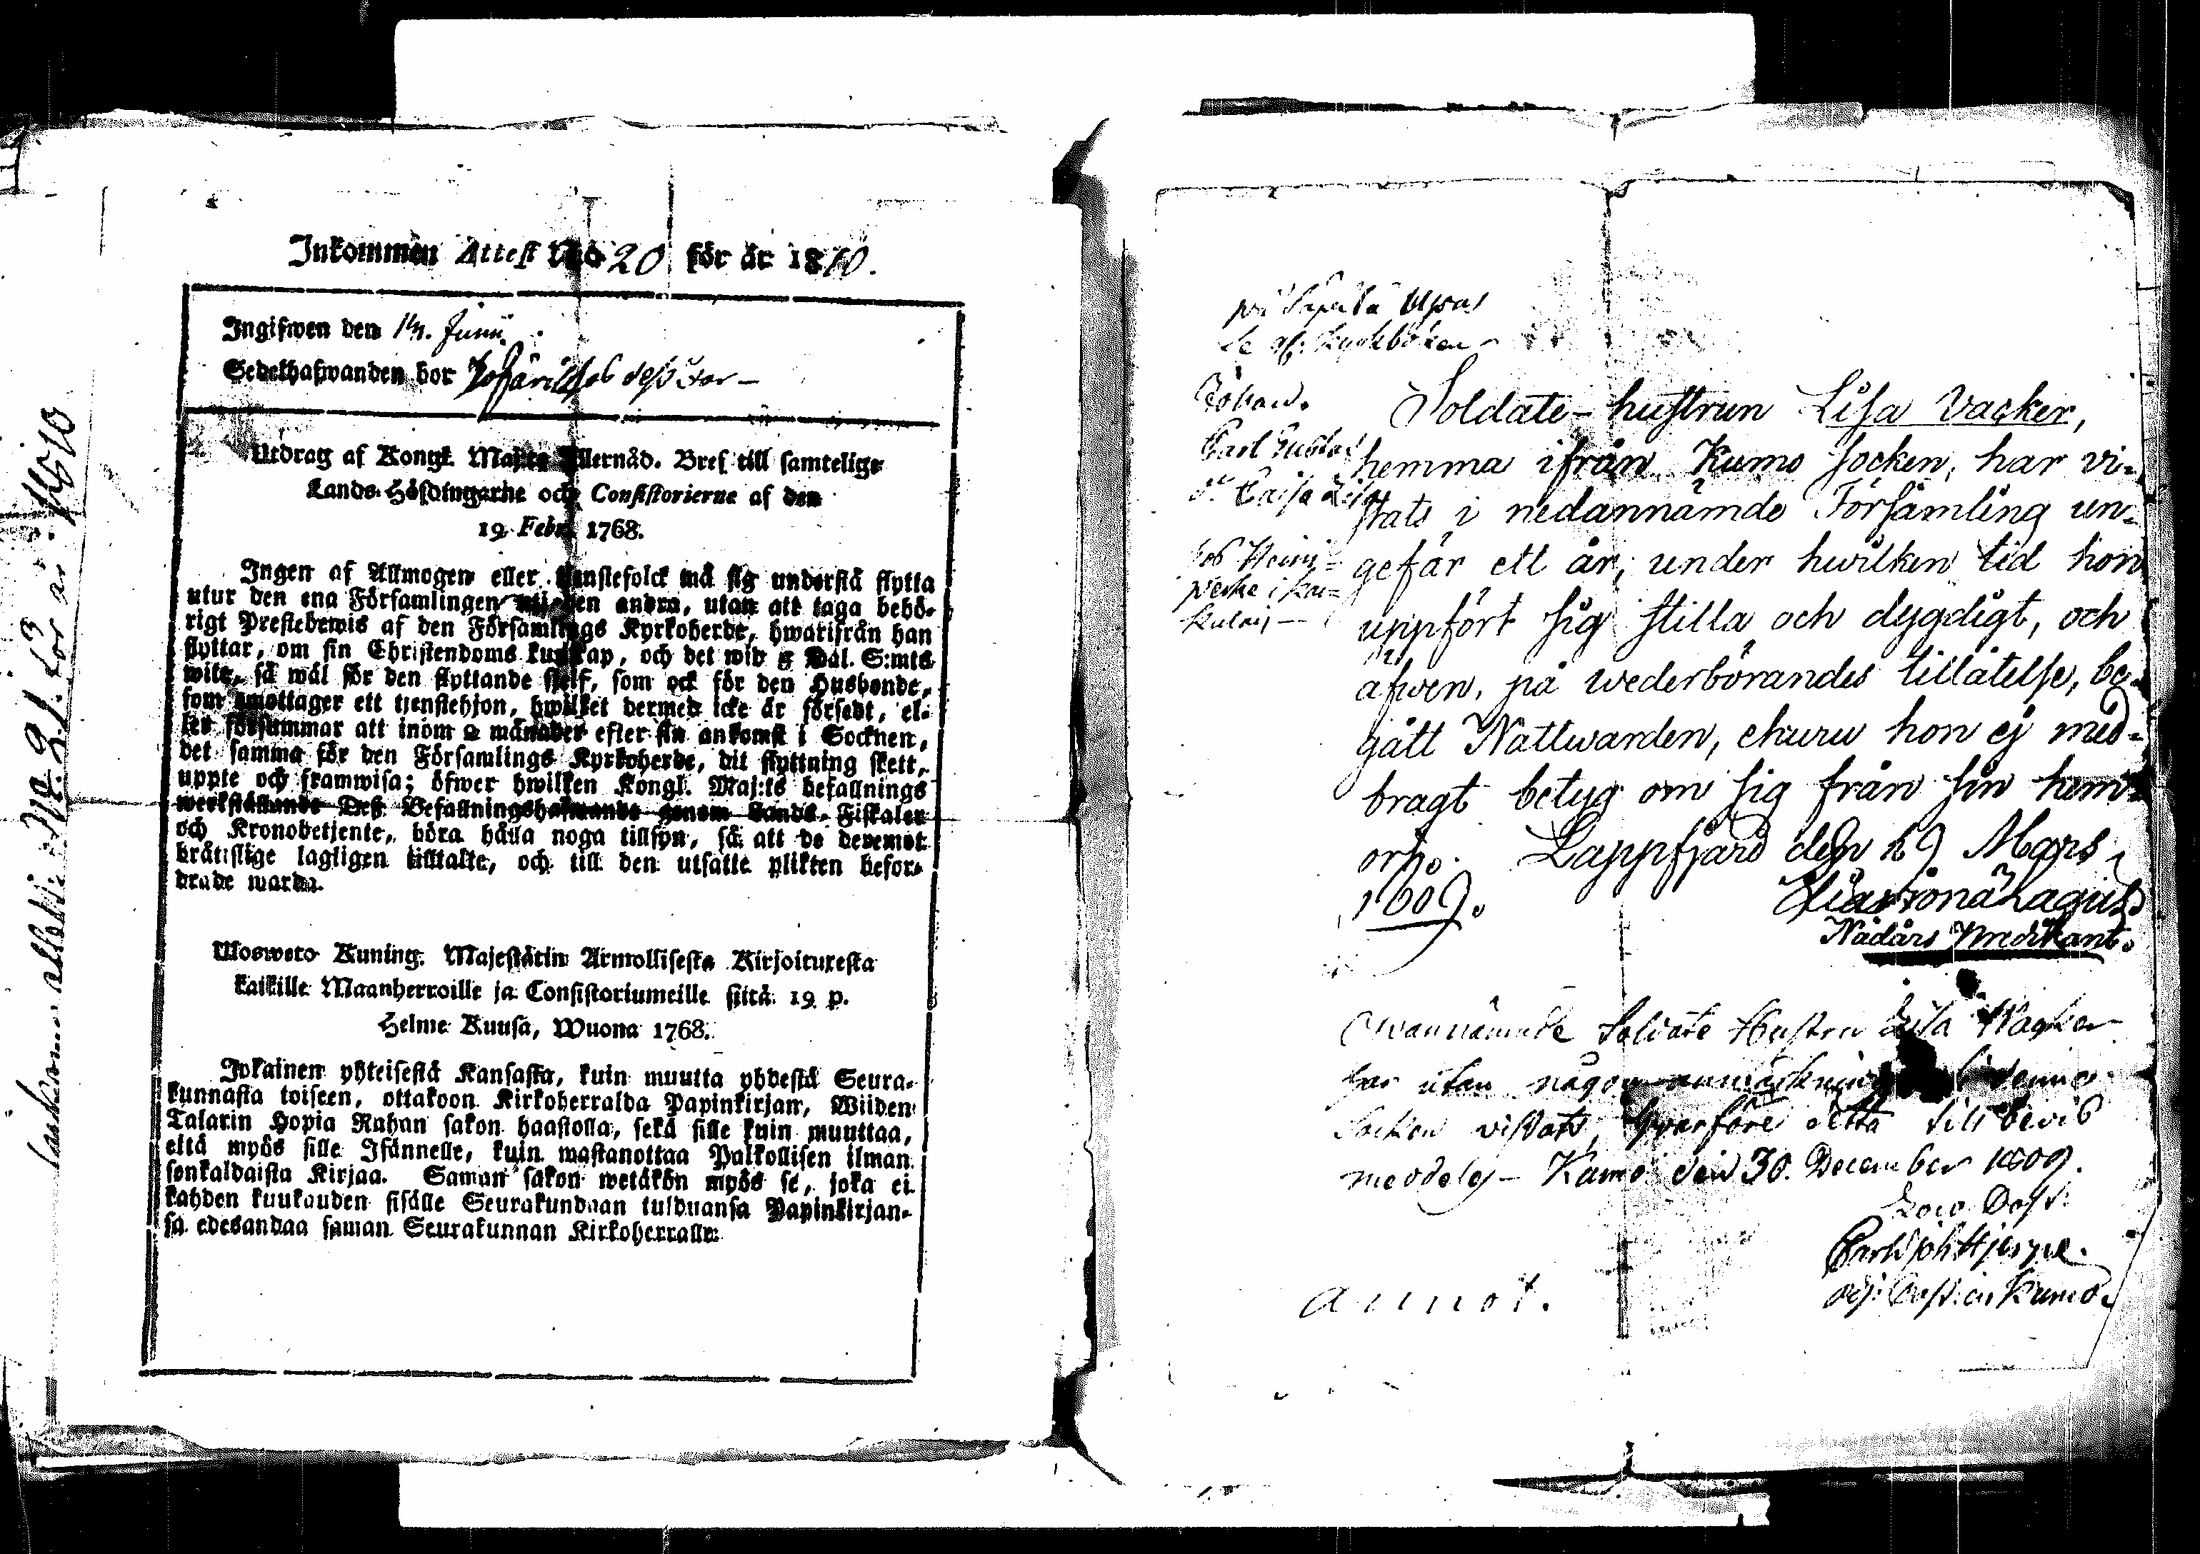 Inkommen Attest No 20 för år 1810.
Ingifwen den 14. Junii.
Sedelhafwanden bor
Utdrag af Kongl. Maj:ts Allernåd. Bref till samtelige
Lands-Höfdingarne och Consistorierne af den
19 Febr. 1768.
Ingen af Allmogen eller tienstefolck må sig understå flytta
utur den ena Församlingen till den andra, utan att taga behö-
rigt Prestebewis af den Församlings Kyrkoherde, hwarifrån han
flyttar, om sin Christendoms kunskap, och det wid 5 Dal. S:mts
wite, så wäl för den flyttande sjelf, som ock för den Husbonde,
som emottager ett tjenstehjon, hwilket dermed icke är försedt, el-
ler försummar att inom 2 månader efter sin ankomst i Socknen,
det samma för den Församlings Kyrkoherde, dit flyttning skett,
uppte och framwisa; öfwer hwilken Kongl. Maj:ts befallnings
werkställande Dess Befallningshafwande genom Lands-Fiskaler
och Kronobetjente, böra hålla noga tillsyn, så att de deremot
bråtislige lagligen tilltalte, och till den utsatte plikten befor-
drade warda.
Uloswoto Kuning. Majestätin Armollisesta Kirjoituxesta
kaikille Maanherroille ja Consistoriumeille siitä 19 p.
Helme Kuusa, Wuona 1768.
Jokainen yhteisestä Kansasta, kuin muutta yhdestä Seura-
kunnasta toiseen, ottakoon Kirkoherralda Papinkirjan, Wiiden
Talarin Hopia Rahan sakon haastolla, sekä sille kuin muuttaa,
että myös sille Isännelle, kuin wastanottaa Palkollisen ilman
senkaldaista Kirjaa. Saman sakon wetäkön myös se, joka ei
kahden kuukauden sisälle Seurakundaan tulduansa Papinkirjan-
sa edesandaa saman Seurakunnan Kirkoherralle.
No 21. för år 1810
Johan.
Carl Gustaf
Caisa Lisa
Soldate-hustrun Lisa Vacker,
hemma ifrån Kumo socken, har vi-
stats i nedannämde Församling un-
gefär ett år, under hwilken tid hon
uppfört sig stilla och dygdigt, och
äfwen, på wederbörandes tillåtelse, be-
gått Nattwarden, ehuru hon ej med-
bragt betyg om sig från sin hem-
ort. Lappfjärd den 19 Mars
1809.
Lagus
Nådårs Predikant.
Ofwannämnde Soldate Hustru Lisa Wacker
har utan någon anmärkning i denna
Socken vistats, hvarföre detta till bevis
meddelas - Kumo den 30. December 1809.
Carl Joh Hjerpe.
adj: Past: in Kumo.
annot.